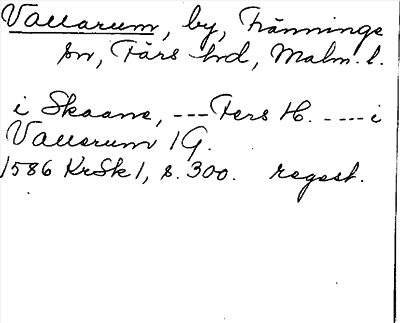 Vallarum, by, Frännings
sn, Färs hd, Malm. l.
i Skaane, --- Fers H. ---- i
Vallerum 1 G.
1586 KrSk 1, s. 300. regest.